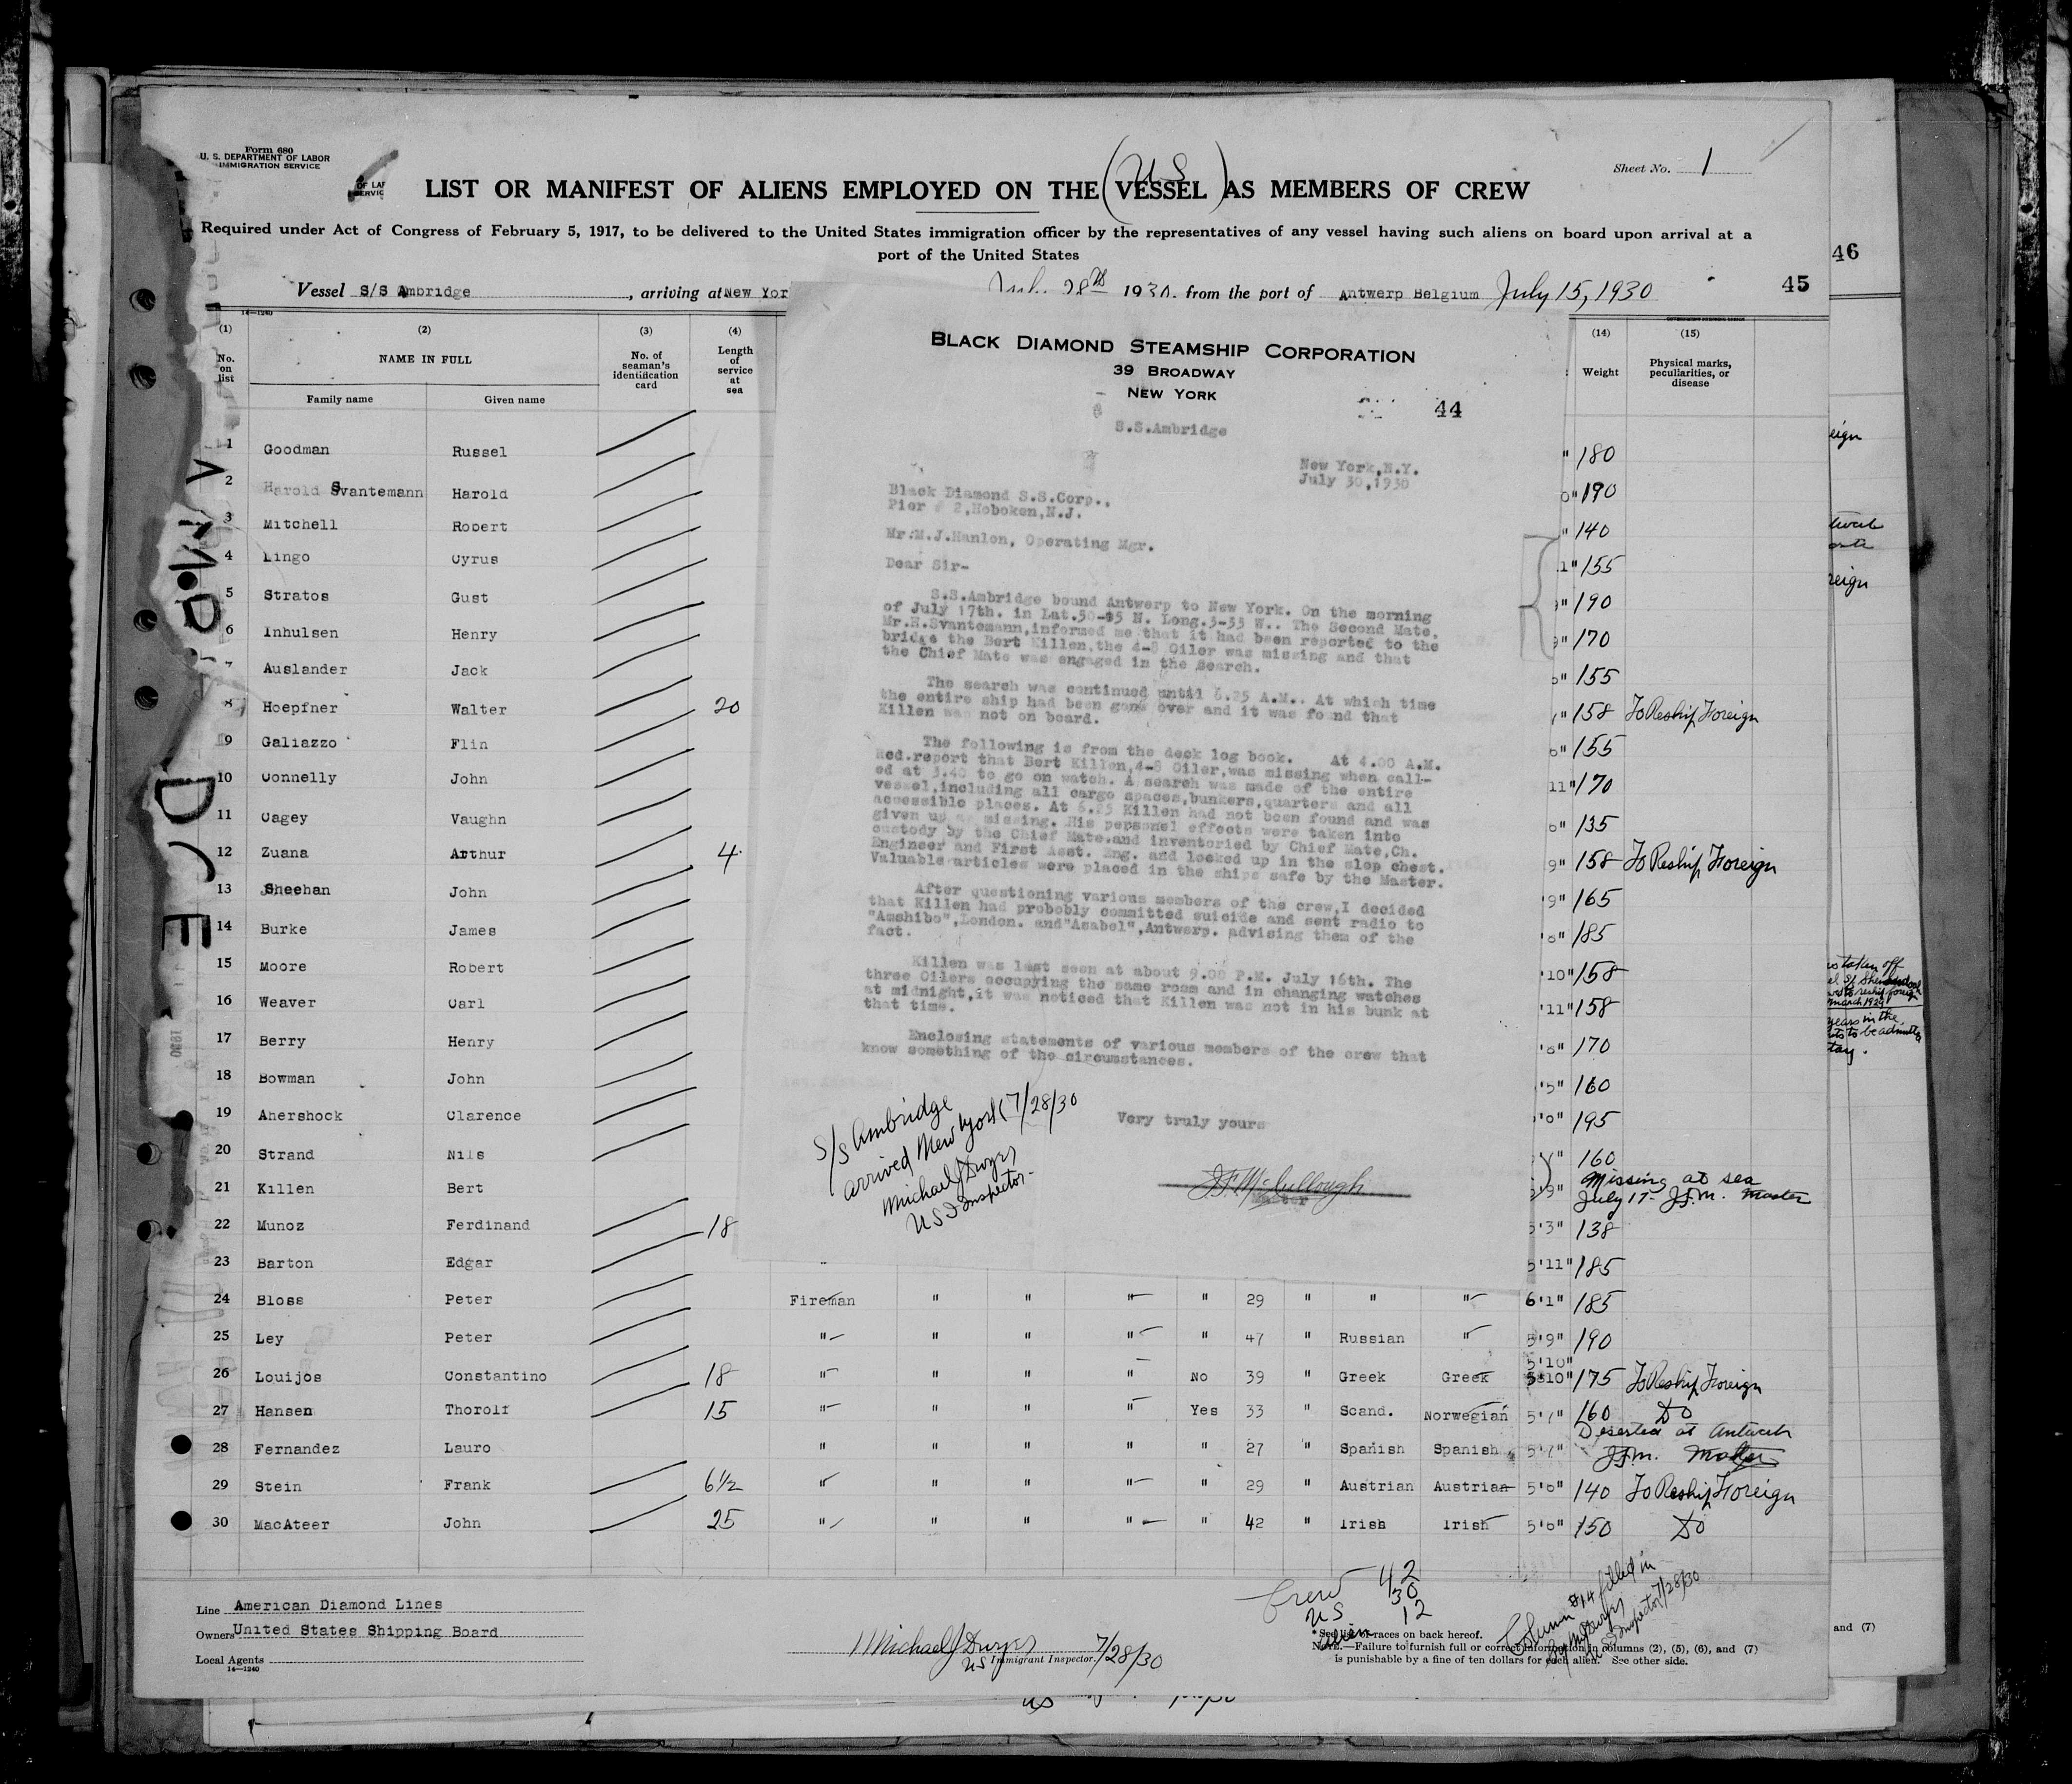 Form 680
U. S. DEPARTMENT OF LABOR
IMMIGRATION SERVICE
Sheet No. 1
(US)
LIST OR MANIFEST OF ALIENS EMPLOYED ON THE VESSEL AS MEMBERS OF CREW
Required under Act of Congress of February 5, 1917, to be delivered to the United States immigration officer by the representatives of any vessel having such aliens on board upon arrival at a
port of the United States
46
Vessel S/S Ambridge, arriving at New Yor 28th 1930, from the port of Antwerp Belgium July 15, 1930 45
14-1240
(1) (2) (3) (4) (14) (15)
No. on list NAME IN FULL No. of seaman's identification card Length of service at sea Weight Physical marks, peculiarities, or disease
Family name Given name
BLACK DIAMOND STEAMSHIP CORPORATION
39 BROADWAY
NEW YORK
44
S.S.Ambridge
New York,N.Y.
July 30,1930
Black Diamond S.S.Corp.,
Pier # 2,Hoboken,N.J.
Mr.M.J.Hanlon, Operating Mgr.
Dear Sir-
S.S.Ambridge bound Antwerp to New York. On the morning
of July 17th. in Lat.50-05 N. Long.3-35 W.. The Second Mate.
Mr.H.Svantemann,informed me that it had been reported to the
bridge the Bert Killen,the 4-8 Oiler was missing and that
the Chief Mate was engaged in the Search.
The search was continued until 6.25 A.M.. At which time
the entire ship had been gone over and it was found that
Killen was not on board.
The following is from the deck log book. At 4.00 A.M.
Red.report that Bert Killen,4-8 Oiler,was missing when call-
ed at 3.40 to go on watch. A search was made of the entire
vessel,including all cargo spaces,bunkers,quarters and all
accessible places. At 6.25 Killen had not been found and was
given up as missing. His personel effects were taken into
custody by the Chief Mate.and inventoried by Chief Mate,Ch.
Engineer and First Asst. Eng. and locked up in the slop chest.
Valuable articles were placed in the ships safe by the Master.
After questioning various members of the crew,I decided
that Killen had probobly committed suicide and sent radio to
"Amshibo",London. and"Asabel",Antwerp. advising them of the
fact.
Killen was last seen at about 9.00 P.M. July 16th. The
three Oilers occupying the same room and in changing watches
at midnight,it was noticed that Killen was not in his bunk at
that time.
Enclosing statements of various members of the crew that
know something of the circumstances.
Very truly yours
J.F. McCullough
Master
S/S Ambridge
arrived New York 7/28/30
Michael J Dwyer
US Inspector
1 Goodman Russel " 180
2 Harold Svantemann Harold 0" 190
3 Mitchell Robert " 140
4 Lingo Cyrus 1" 155
5 Stratos Gust " 190
6 Inhulsen Henry 9" 170
7 Auslander Jack 155
8 Hoepfner Walter 20 158 To Reship Foreign
9 Galiazzo Flin 155
10 Connelly John 11" 170
11 Cagey Vaughn 135
12 Zuana Arthur 4 9" 158 To Reship Foreign
13 Sheehan John '9" 165
14 Burke James 185
15 Moore Robert '10" 158
16 Weaver Carl '11" 158
17 Berry Henry 170
18 Bowman John 160
19 Ahershock Clarence 195
20 Strand Nils 160
21 Killen Bert '9" Missing at sea
July 17 - J.F.M. Master
22 Munoz Ferdinand 18 5'3" 138
23 Barton Edgar 5'11" 185
24 Bloss Peter Fireman " " " " 29 " " " 6'1" 185
25 Ley Peter " " " " " 47 " Russian " 5'9" 190
26 Louijos Constantino 18 " " " " No 39 " Greek Greek 5'10" 5'10" 175 To Reship Foreign
27 Hansen Thorolf 15 " " " " Yes 33 " Scand. Norwegian 5'7" 160 Do
28 Fernandez Lauro " " " " " 27 " Spanish Spanish 5'7" Deserted at Antwerp
J.F.M. Master
29 Stein Frank 6½ " " " " " 29 " Austrian Austrian 5'6" 140 To Reship Foreign
30 MacAteer John 25 " " " " " 42 " Irish Irish 5'6" 150 Do
Crew 42
US 30
Alien 12
Column #14 filled in
by M J Dwyer
US Inspector 7/28/30
Line American Diamond Lines
Owners United States Shipping Board
Local Agents
14-1240
Michael J Dwyer 7/28/30
US Immigrant Inspector.
* See list of races on back hereof.
NOTE.—Failure to furnish full or correct information in columns (2), (5), (6), and (7)
is punishable by a fine of ten dollars for each alien. See other side.
and (7)